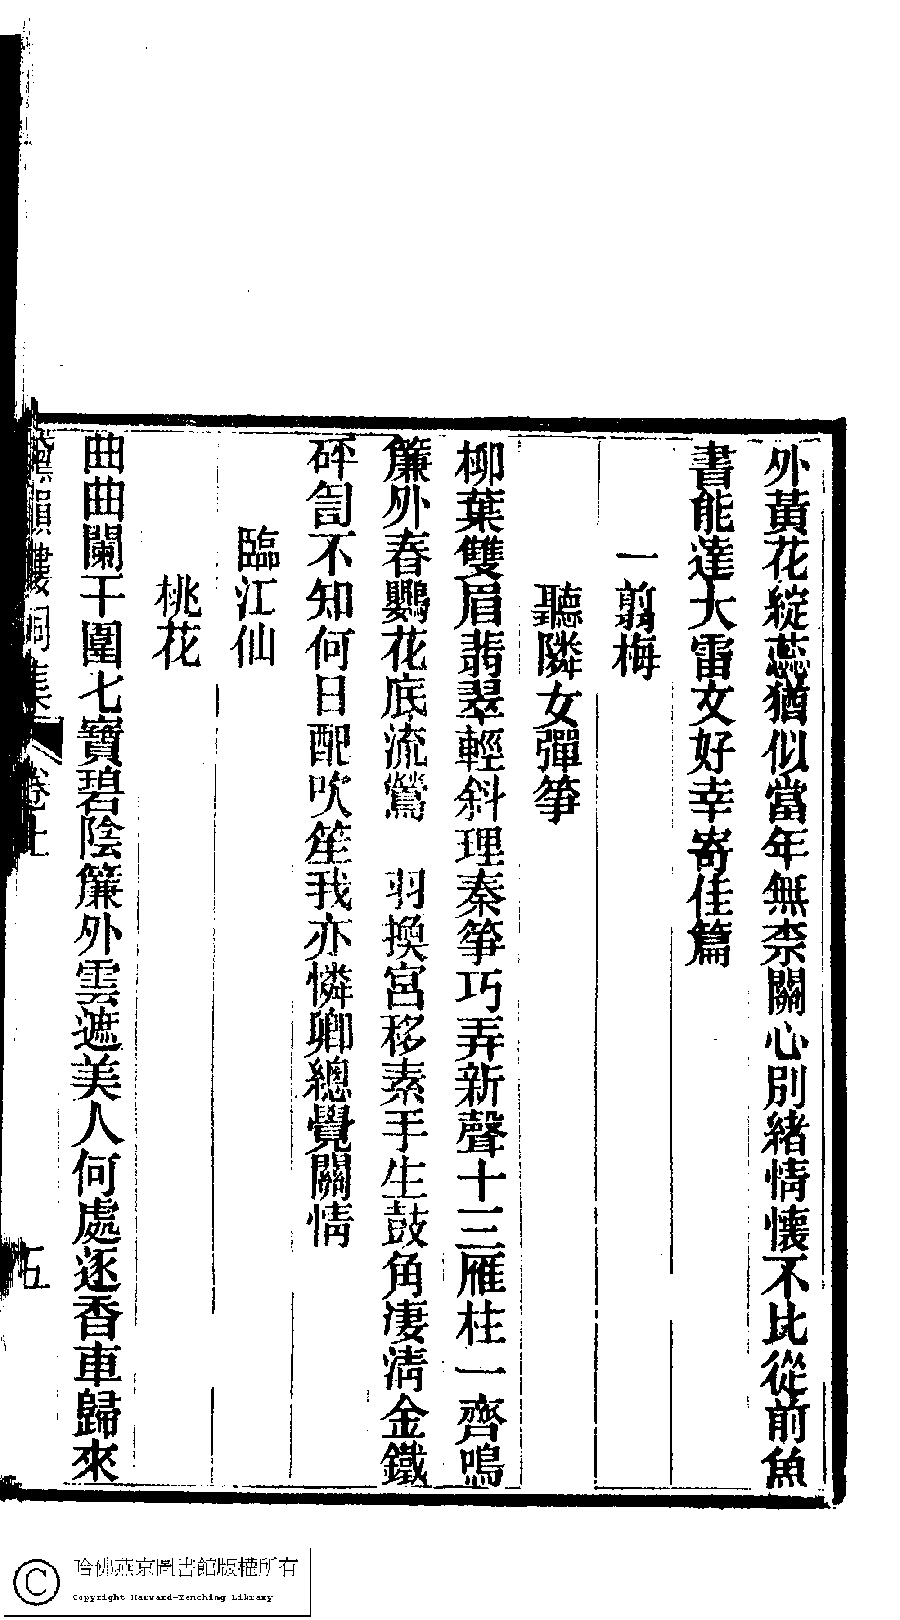 外黃花綻蕊猶似當年無柰關心別緒情懷不比從前魚
書能達大雷文好幸寄佳篇
一翦梅
聽隣女彈箏
柳葉雙眉翡翠輕斜理秦箏巧弄新聲十三雁柱一齊鳴
簾外春鸚花底流鶯　羽換宮移素手生鼓角凄淸金鐵
砰訇不知何日配吹笙我亦憐卿總覺關情
臨江仙
桃花
曲曲闌干圍七寶碧陰簾外雲遮美人何處逐香車歸來
韻樓詞集　卷上　五
哈佛燕京圖書館版權所有
Copyright Harvard-Yenching Library